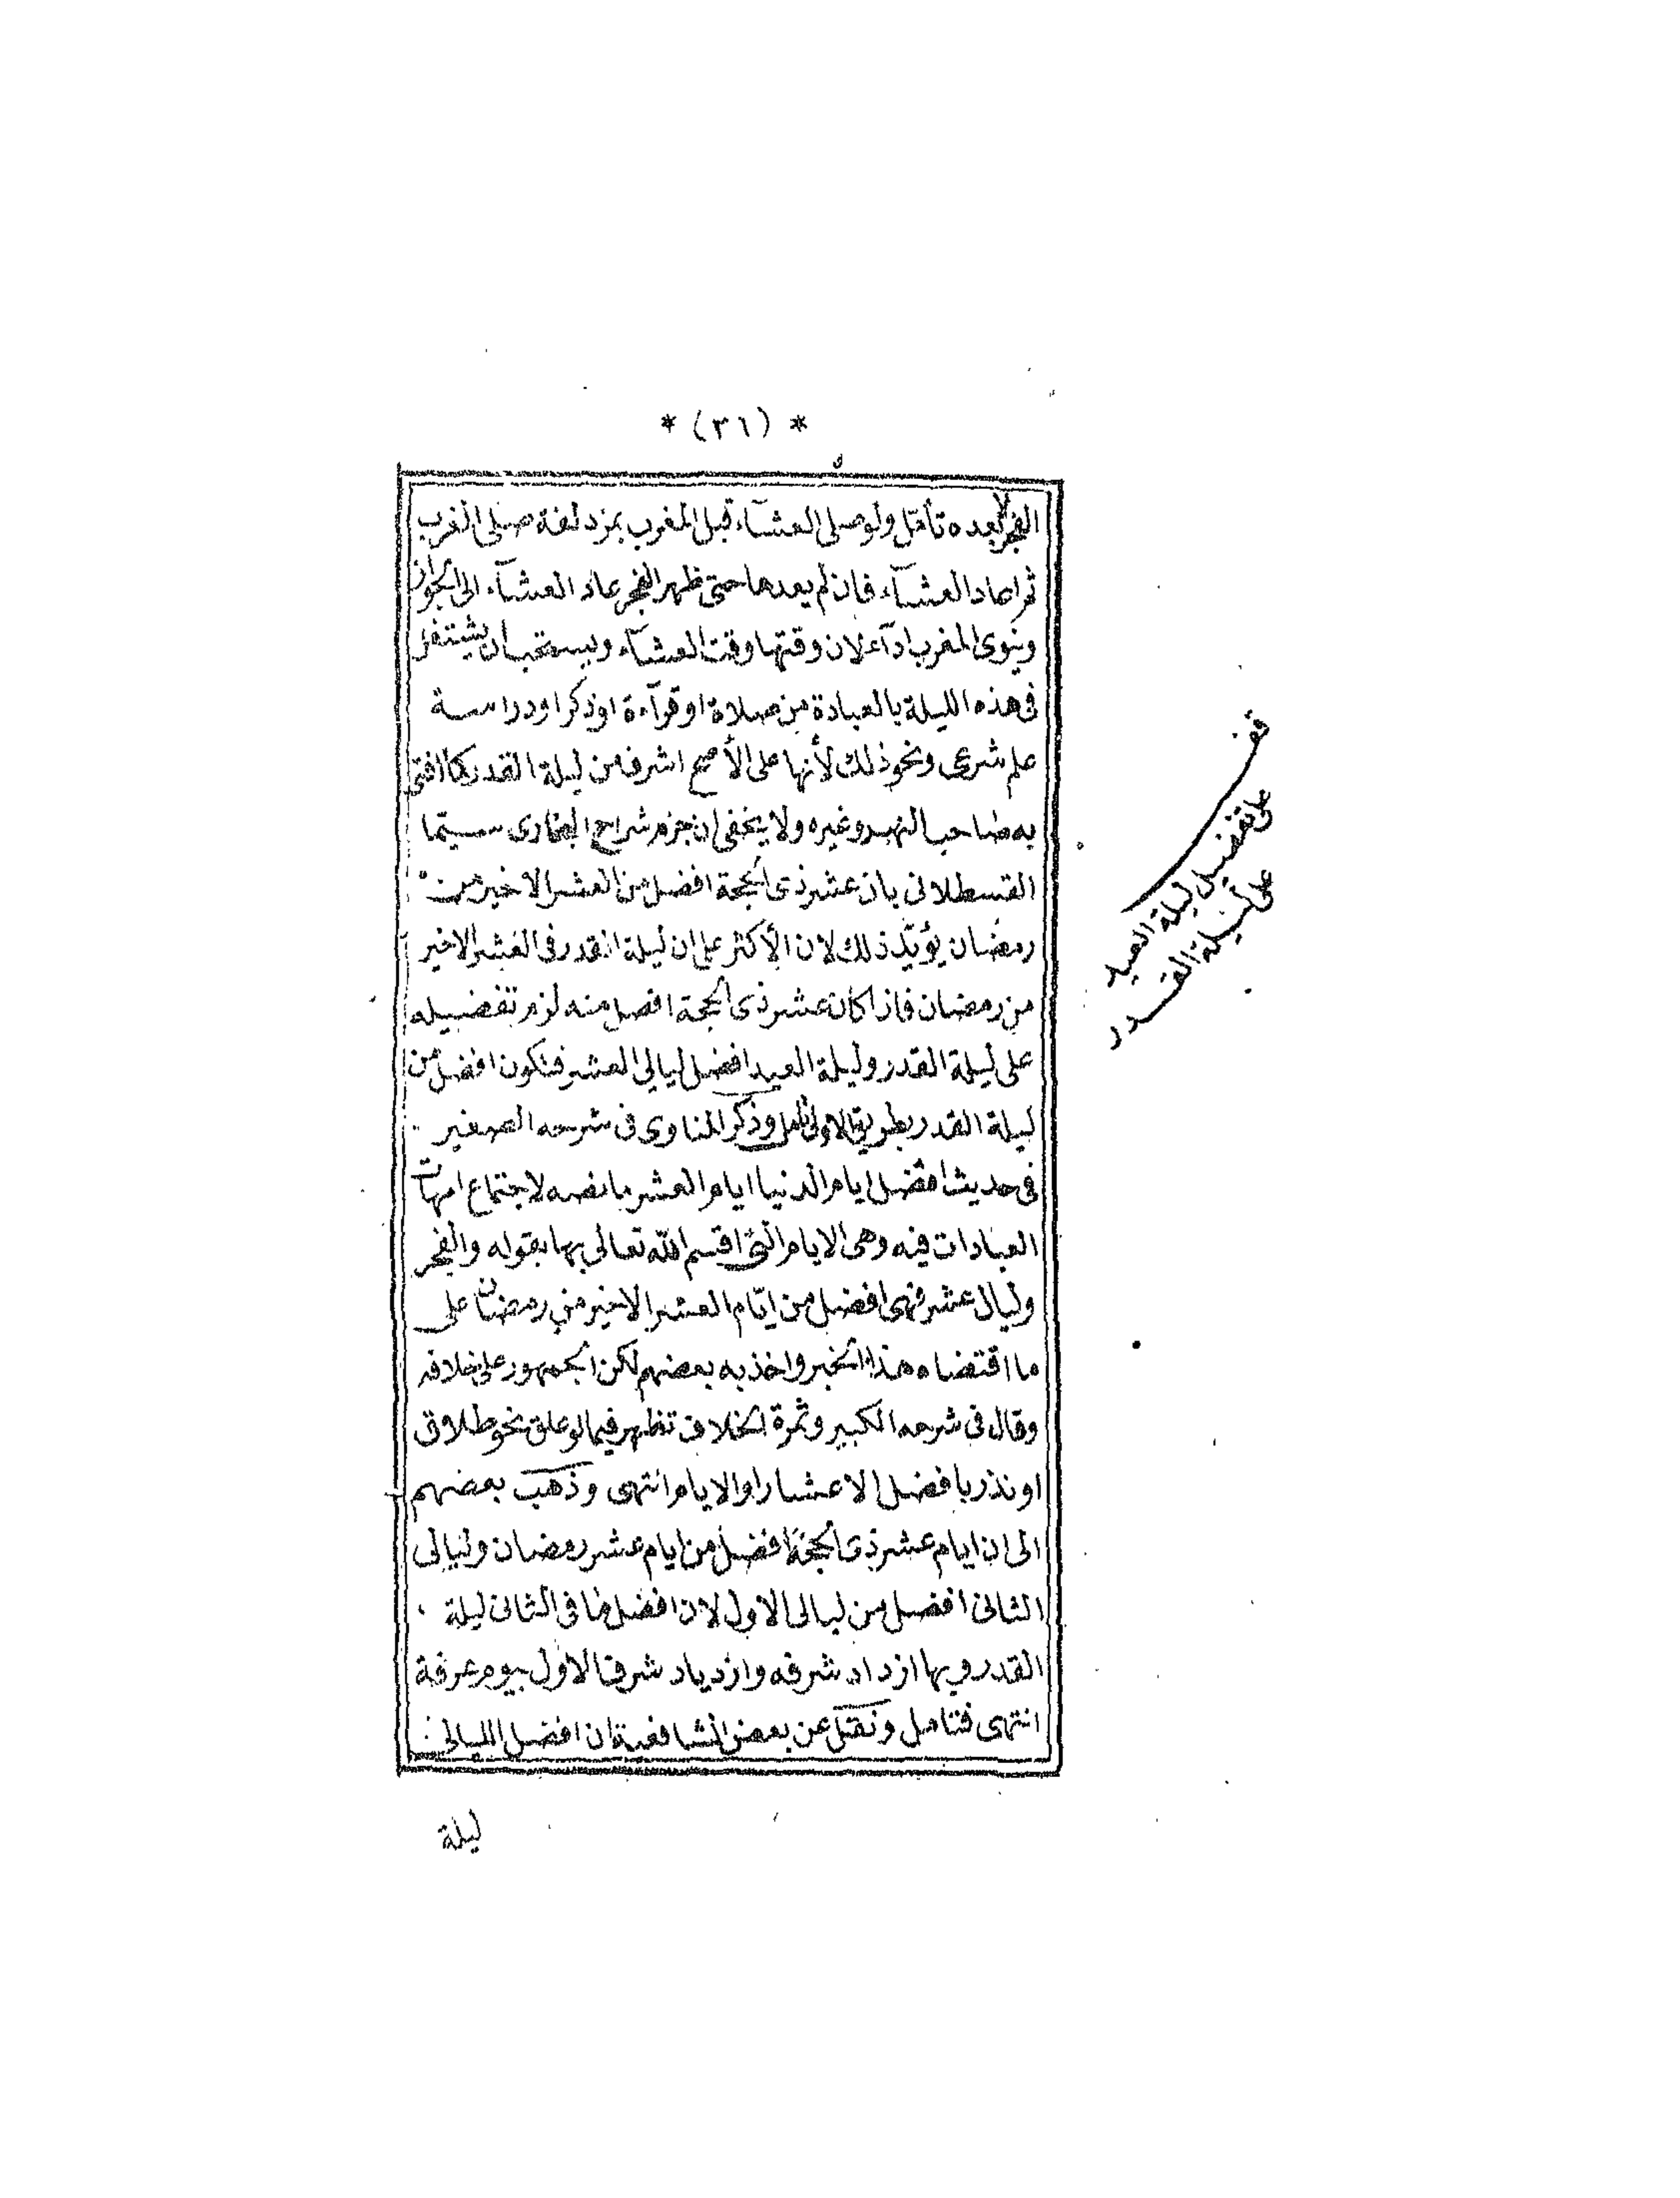 * (٣٦) *
الفجر لا بعده تأمّل ولو صلى العشآء قبل المغرب بمزدلفة صلى المغرب
ثم اعاد العشآء فان لم يعدها حتى ظهر الفجر عاد العشآء الى الجواز
وينوى المغرب ادآء لان وقتها وقت العشآء ويستحب ان يشتغل
فى هذه الليلة بالعبادة من صلاة او قرآءة او ذكر او دراسة
علم شرعى ونحو ذلك لأنها على الأصح اشرف من ليلة القدر كما افتى
به صاحب النهر وغيره ولا يخفى ان جزم شراح البخارى سيّما
القسطلانى بان عشر ذى الحجة افضل من العشر الاخير من
رمضان يؤيّد ذلك لان الأكثر على ان ليلة القدر فى العشر الاخير
من رمضان فاذا كان عشر ذى الحجة افضل منه لزم تفضيله
على ليلة القدر وليلة العيد افضل ليالي العشر فتكون افضل من
ليلة القدر بطريق الاولى تامل وذكر المناوى فى شرحه الصغير
فى حديث افضل ايام الدنيا ايام العشر ما نصه لاجتماع امهات
العبادات فيه وهى الايام التى اقسم الله تعالى بها بقوله والفجر
وليال عشر فهى افضل من ايّام العشر الاخير من رمضان على
ما اقتضاه هذا الخبر واخذ به بعضهم لكن الجمهور على خلافه
وقال فى شرحه الكبير وثمرة الخلاف تظهر فيما لو علق نحو طلاق
او نذر بافضل الاعشار او الايام انتهى وذهب بعضهم
الى ان ايام عشر ذى الحجة افضل من ايام عشر رمضان وليالى
الثانى افضل من ليالى الاول لان افضل ما فى الثانى ليلة
القدر وبها ازداد شرفه وازدياد شرف الاول بيوم عرفة
انتهى فتامل ونقل عن بعض الشافعية ان افضل الليالى
ليلة
قف
على تفضيل ليلة العيد
على ليلة القدر